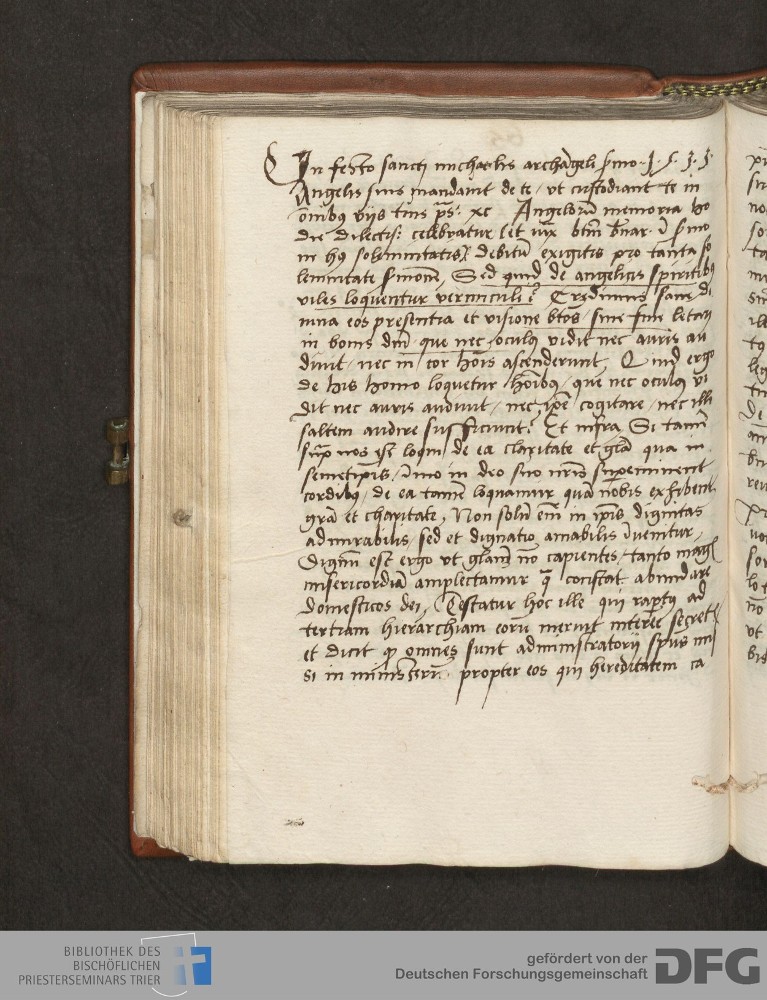 In festo sancti michaelis archāgeli s̄mo. 1. 5. 3. 5.
Angelis suis mandauit de te, vt custodiant te in
ōnibꝰ vijs tuis p̄s: xc Angeloꝝ memoria ho
die dilectis: celebratur let vix btm̄ b̄nar. ī s̄mo
in hꝰ solemnitatis, debitū exigitis pro tanta so
lemnitate s̄monē, Sed quid de angelicis spiritibꝰ
viles loquentur vermiculi? Credimus sane di
uina eos presentia et visione btōs, sine fine letari
in bonis dn̄i que nec oculꝰ vidit nec auris au
diuit, nec in cor hoīs ascenderunt, Quid ergo
de his homo loquetur hoībꝰ, que nec oculꝰ vi
dit nec auris audiuit, nec ip̄e cogitare, nec illi
saltem audire sufficiunt? Et infra, Si tamē
suꝑ nos est loqui de ea claritate et gl̄a qua in
semetip̄is, īmo in deo suo nr̄is supeminent
cordibꝰ, de ea tamē loquamur quā nobis exhibent
gr̄a et charitate, Non solū em̄ in ip̄is dignitas
admirabilis, sed et dignatio amabilis īuenitur,
Dignū est ergo vt gl̄am nō capientes, tanto magꝭ
misericordiā amplectamur q̄ constat abundare
domesticos dei, Testatur hoc ille qui raptꝰ ad
tertiam hierarchiam eorū meruit interēe secretꝭ
et dicit ꝙ omnes sunt administratorij sp̄us mi
si in ministeriū propter eos qui hereditatem ca
BIBLIOTHEK DES
BISCHÖFLICHEN
PRIESTERSEMINARS TRIER
gefördert von der
Deutschen Forschungsgemeinschaft DFG